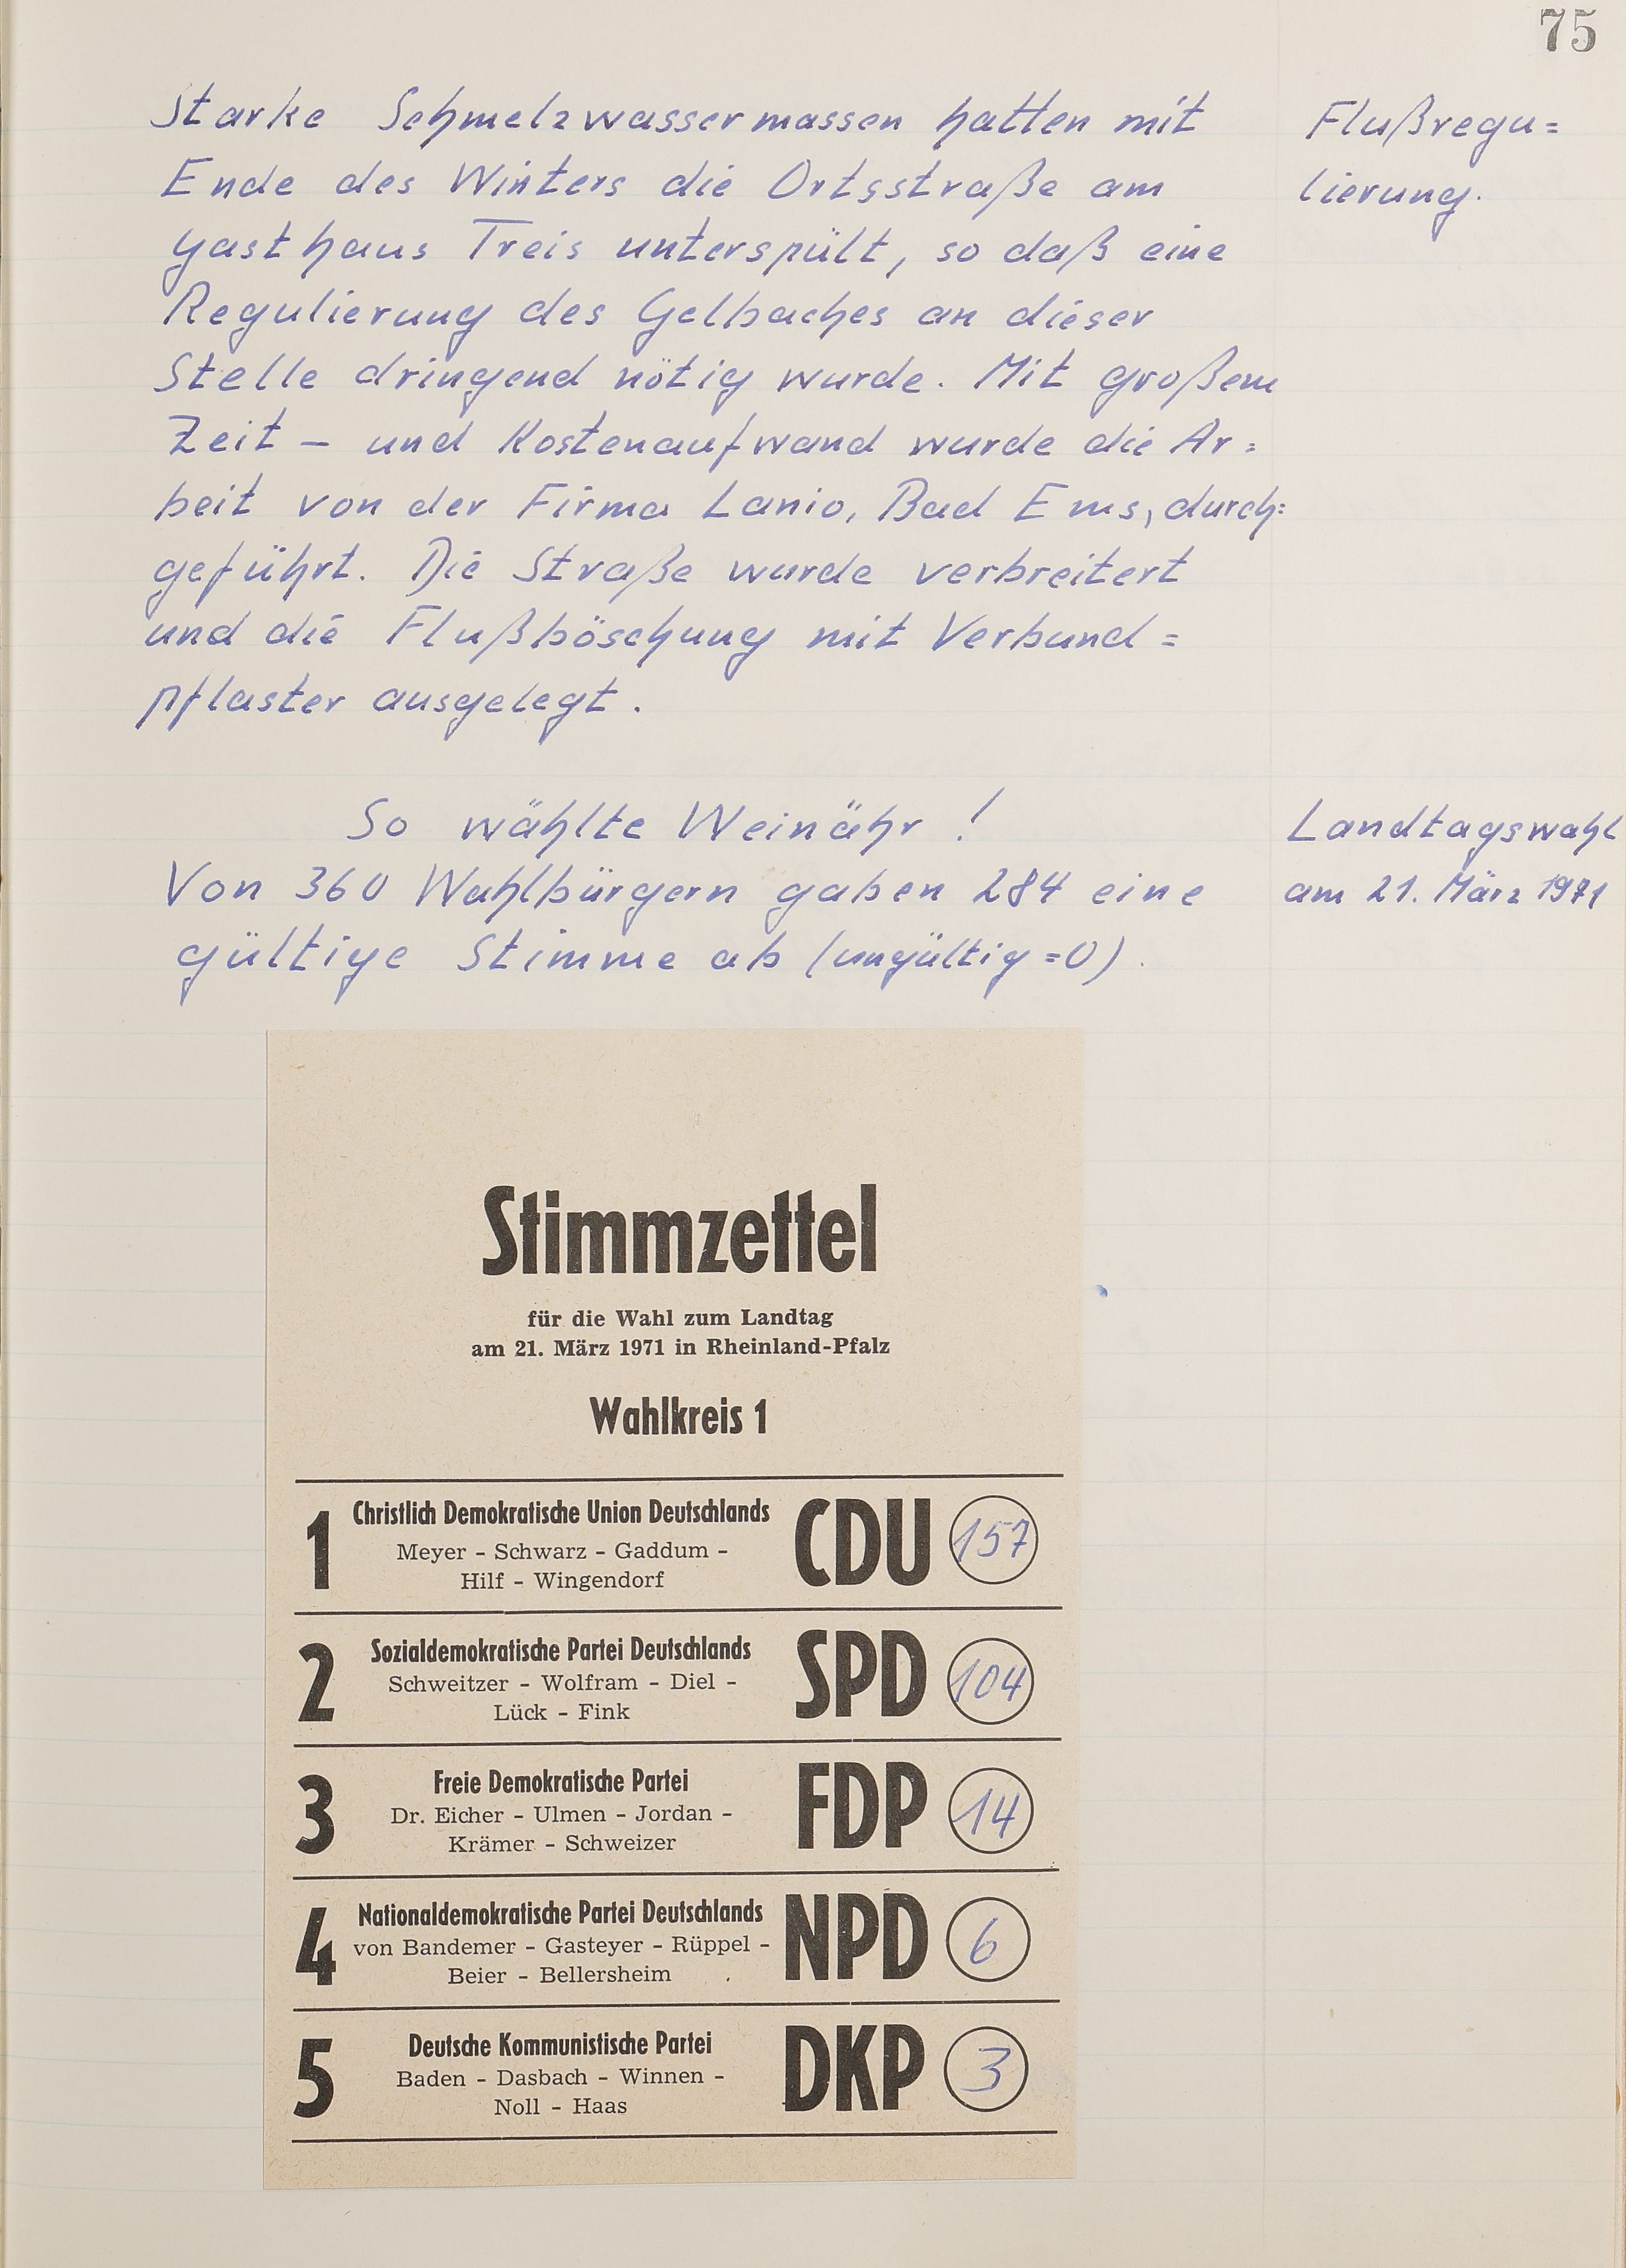 75
Starke Schmelzwassermassen hatten mit
Ende des Winters die Ortsstraße am
Gasthaus Treis unterspült, so daß eine
Regulierung des Gelbaches an dieser
Stelle dringend nötig wurde. Mit großem
Zeit – und Kostenaufwand wurde die Ar=
beit von der Firma Lanio, Bad Ems, durch=
geführt. Die Straße wurde verbreitert
und die Flußböschung mit Verbund=
pflaster ausgelegt.
Flußregu=
lierung.
So wählte Weinähr!
Von 360 Wahlbürgern gaben 284 eine
gültige Stimme ab (ungültig = 0).
Landtagswahl
am 21. März 1971
Stimmzettel
für die Wahl zum Landtag
am 21. März 1971 in Rheinland-Pfalz
Wahlkreis 1
1 Christlich Demokratische Union Deutschlands CDU 157
Meyer - Schwarz - Gaddum -
Hilf - Wingendorf
2 Sozialdemokratische Partei Deutschlands SPD 104
Schweitzer - Wolfram - Diel -
Lück - Fink
3 Freie Demokratische Partei FDP 14
Dr. Eicher - Ulmen - Jordan -
Krämer - Schweizer
4 Nationaldemokratische Partei Deutschlands NPD 6
von Bandemer - Gasteyer - Rüppel -
Beier - Bellersheim
5 Deutsche Kommunistische Partei DKP 3
Baden - Dasbach - Winnen -
Noll - Haas